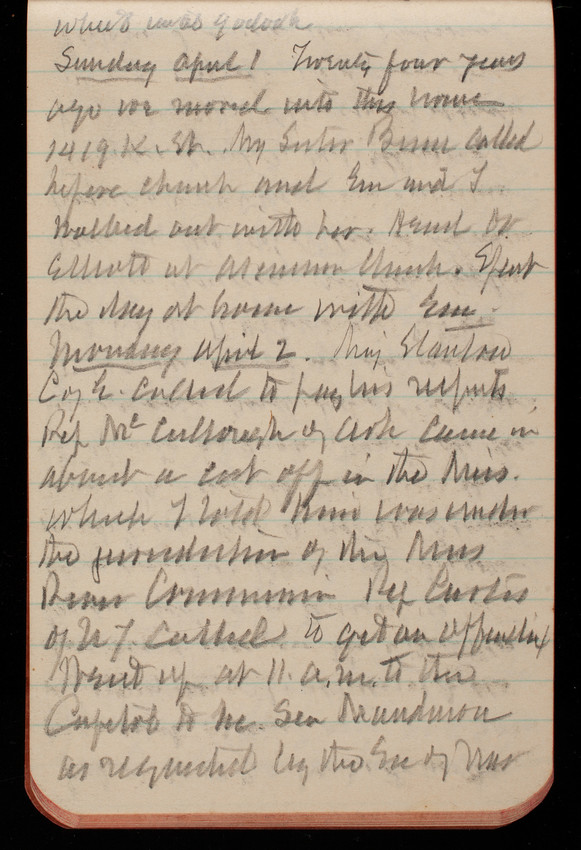 until 9 o'clock
Sunday April 1 Twenty four years
ago we moved into this home
1419 K. St. My Sister called
before church and Em and I
walked out with her. Heard Dr
Elliott at Ascension Church. Spent
the day at home with Em.
Monday April 2. Maj Stanton
Cog E. called to pay his respects
Rep Mc Culloough of Ark came in
about a cut off in the Miss.
which I told him was under
the jurisdiction of the Miss
River Commission Rep Curtis
of N.Y. called to get an
Went up at 11. a.m. to the
Capitol to see Sen Manderson
as requested by the Sec of War